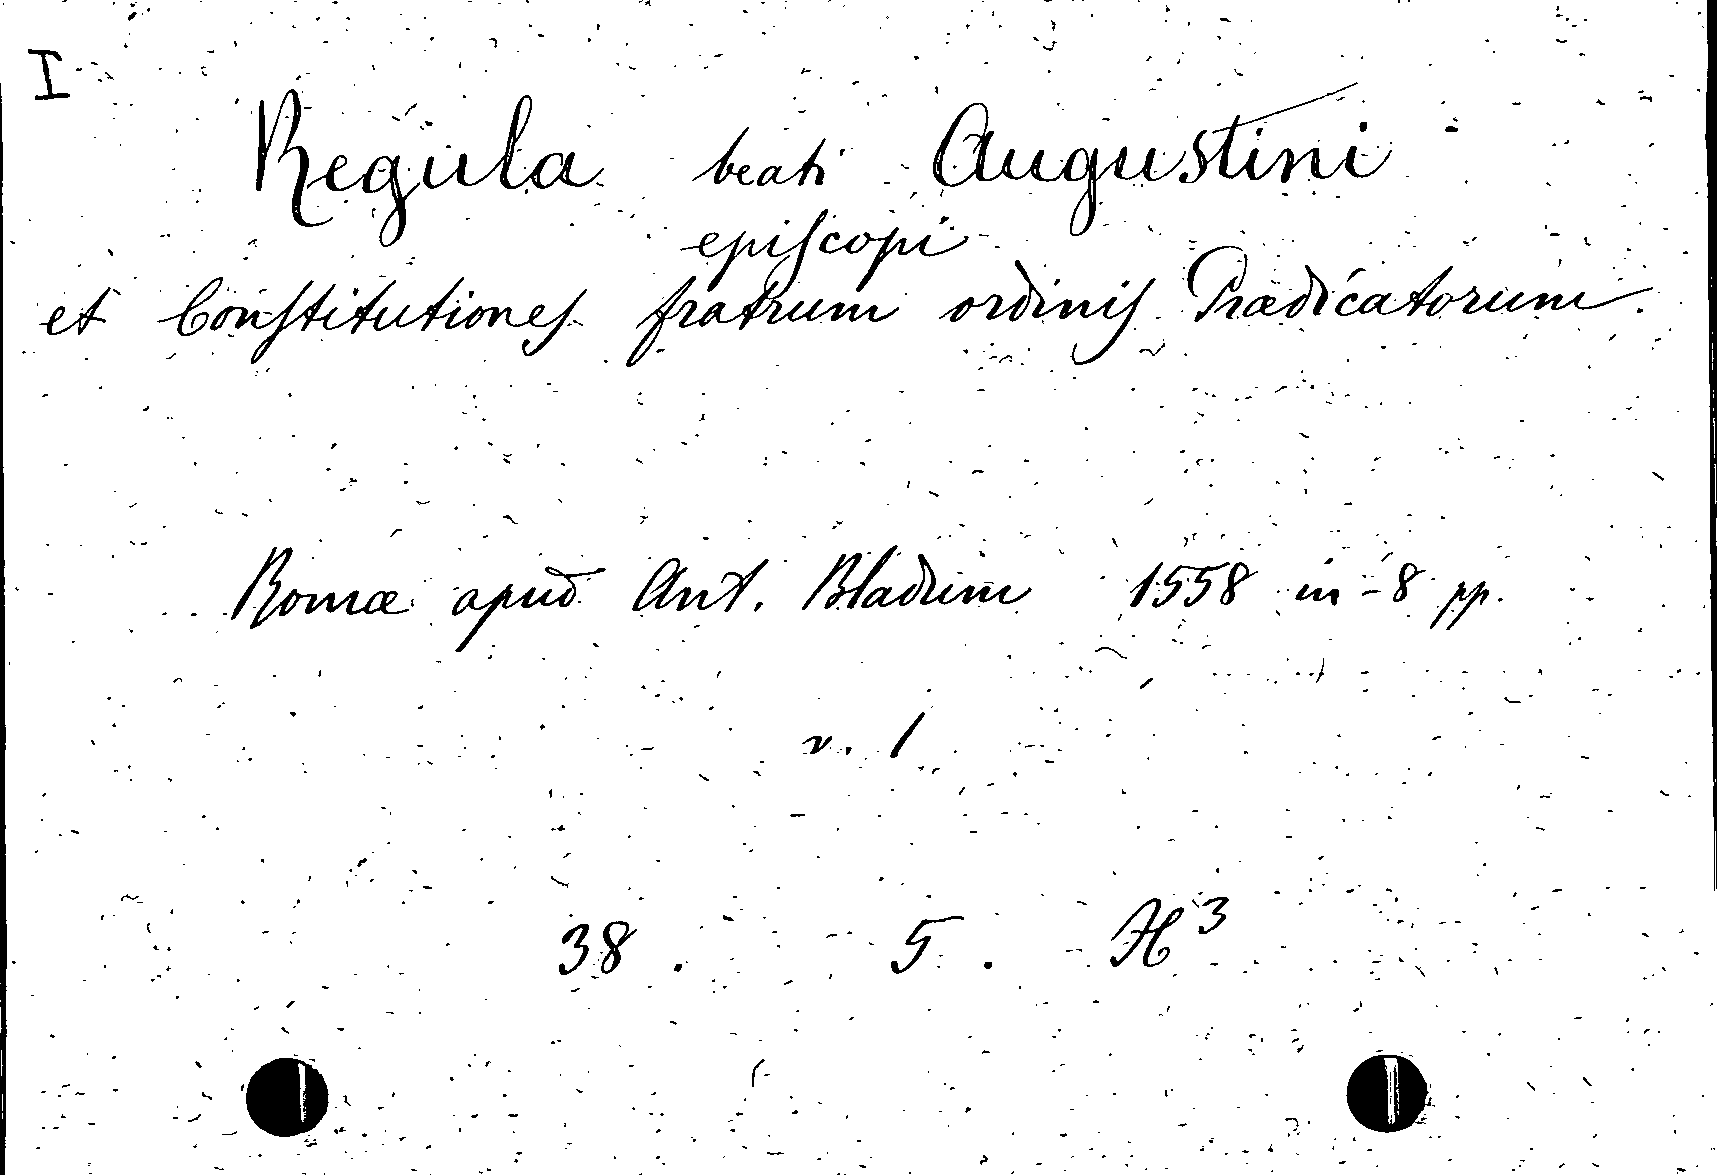 I
Regula beati Augustini
episcopi
et Constitutiones fratrum ordinis Prædicatorum.
Romæ apud Ant. Bladum 1558 in-8 pp.
v. 1
38. 5. H³